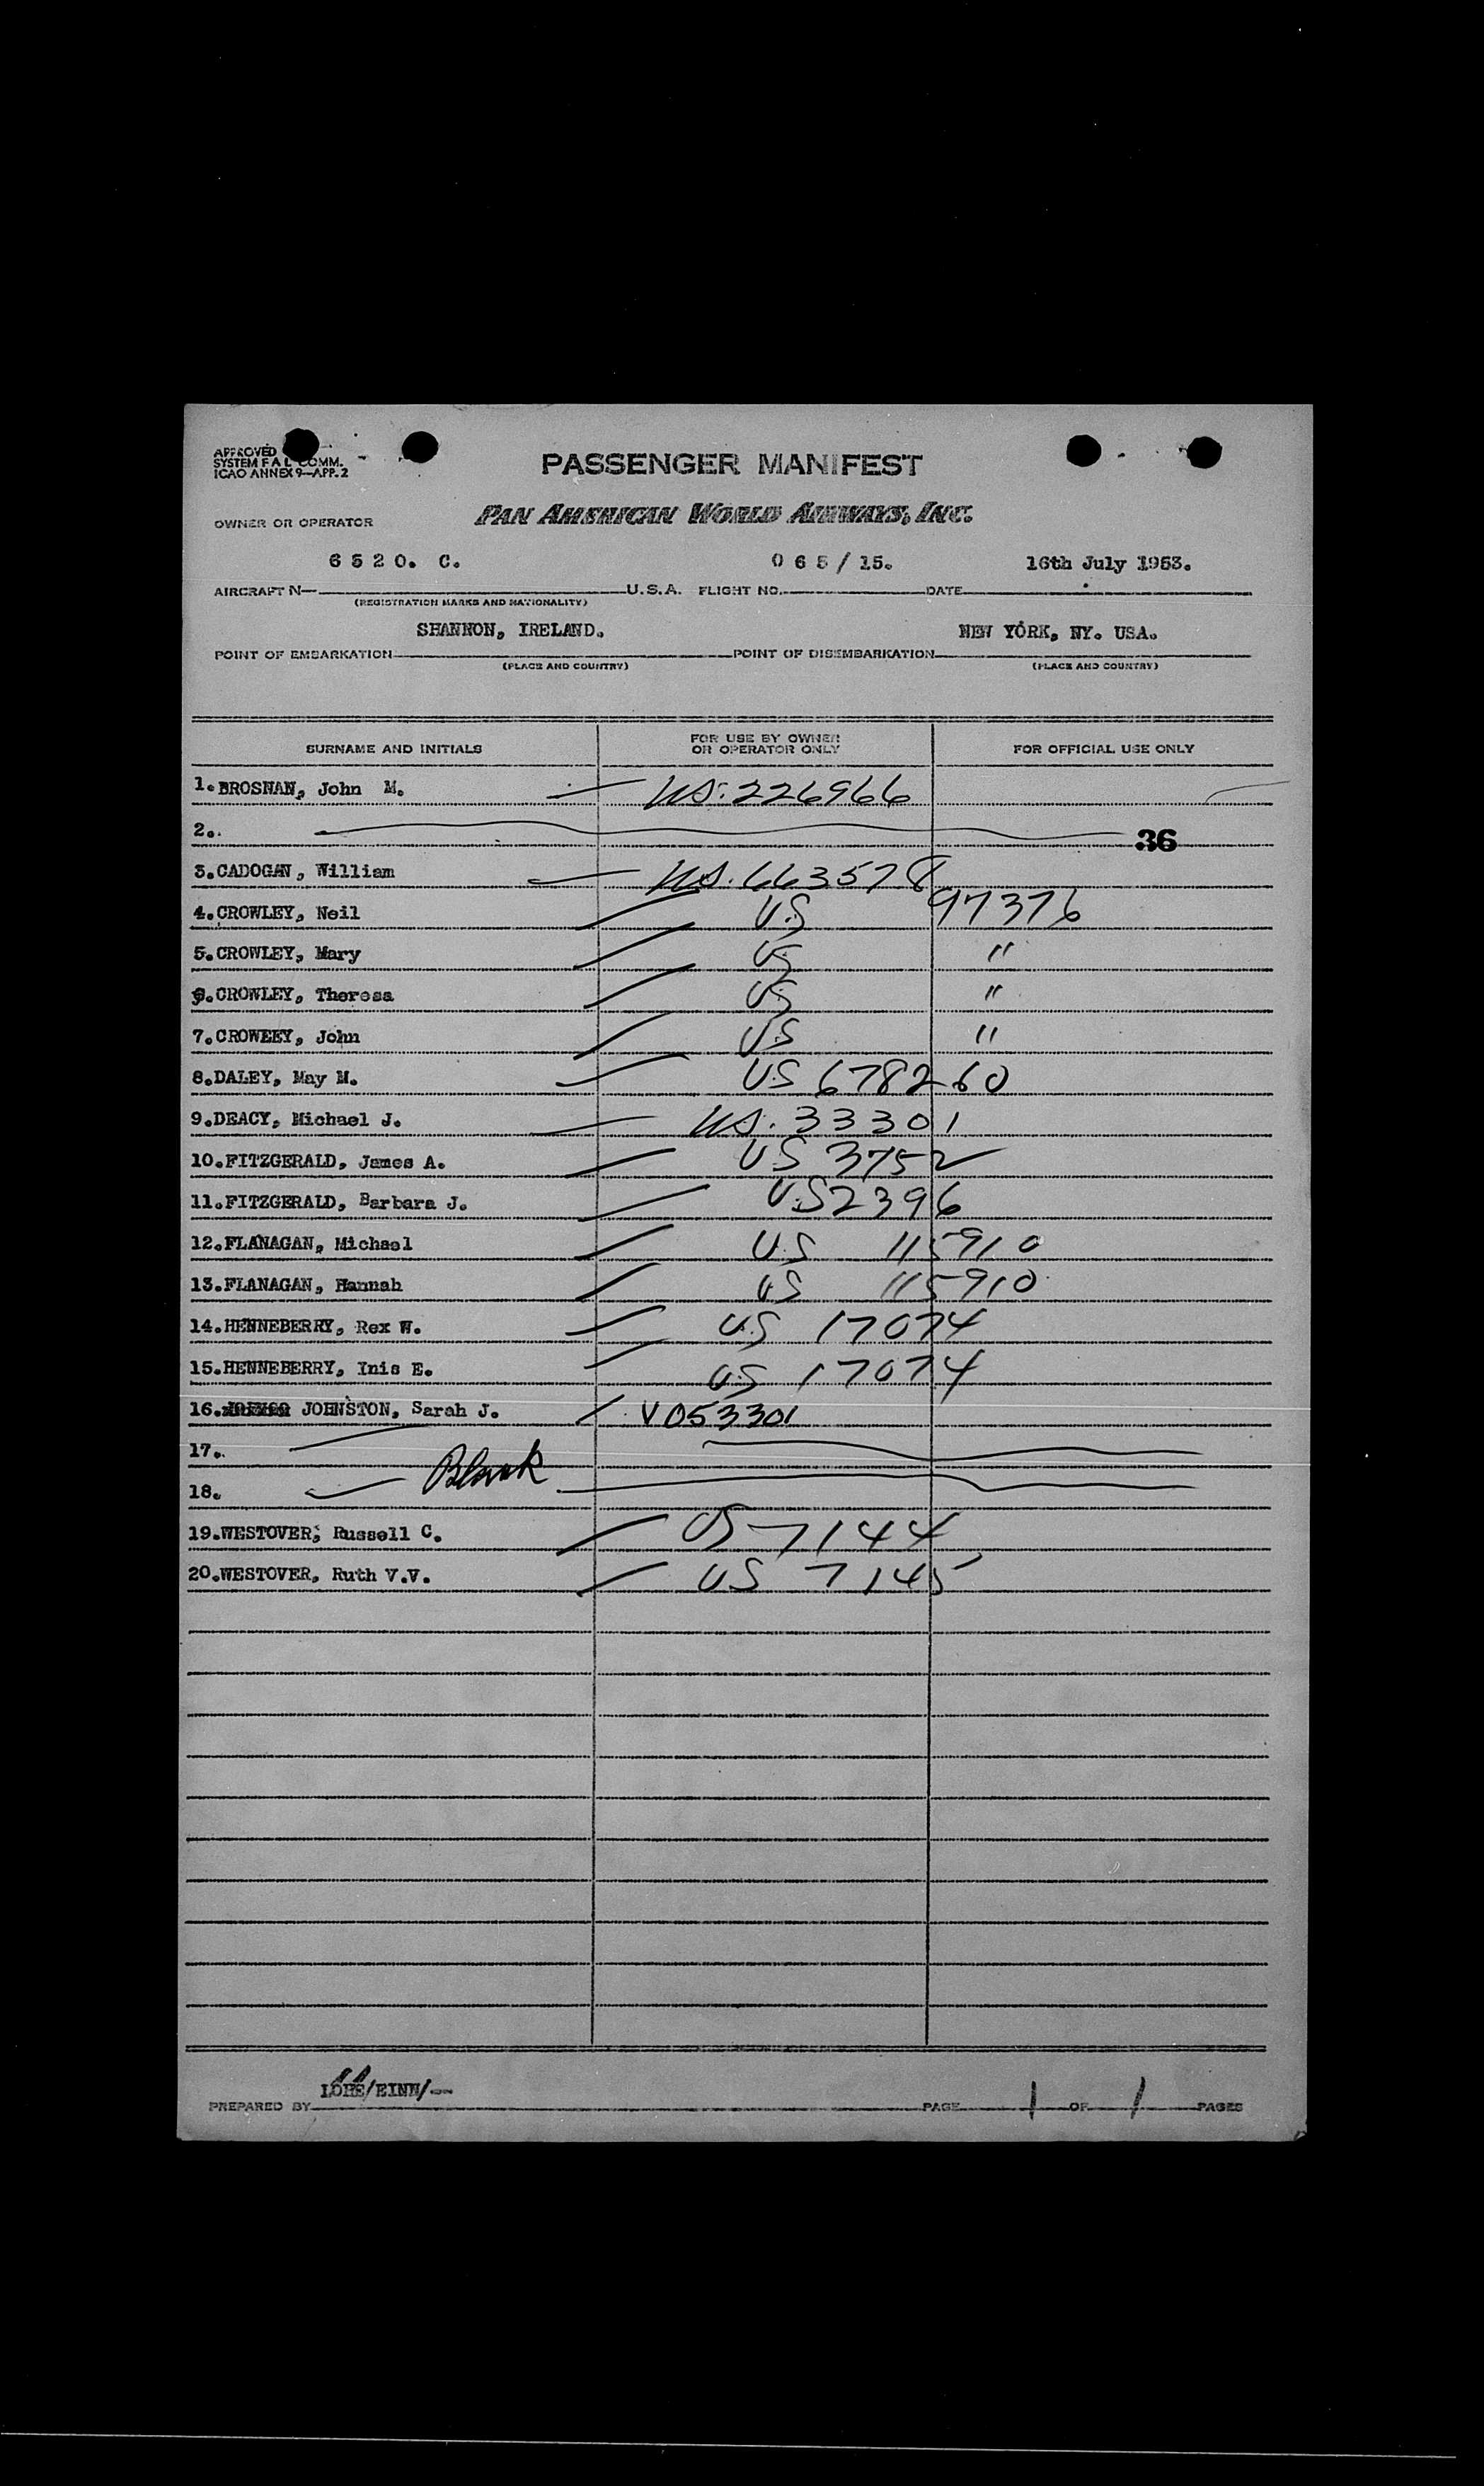 APPROVED
SYSTEM F A L COMM.
ICAO ANNEX 9—APP. 2
PASSENGER MANIFEST
OWNER OR OPERATOR PAN AMERICAN WORLD AIRWAYS, INC.
6 5 2 0. C. 0 6 5 / 15. 16th July 1953.
AIRCRAFT N— U.S.A. FLIGHT NO. DATE
(REGISTRATION MARKS AND NATIONALITY)
SHANNON, IRELAND. NEW YORK, NY. USA.
POINT OF EMBARKATION POINT OF DISEMBARKATION
(PLACE AND COUNTRY) (PLACE AND COUNTRY)
SURNAME AND INITIALS FOR USE BY OWNER OR OPERATOR ONLY FOR OFFICIAL USE ONLY
1. BROSNAN, John M. US. 226966
2. 36
3. CADOGAN, William US. 663578
4. CROWLEY, Neil US 97376
5. CROWLEY, Mary US "
6. CROWLEY, Theresa US "
7. CROWEEY, John US "
8. DALEY, May M. US 678260
9. DEACY, Michael J. US. 33301
10. FITZGERALD, James A. US 3752
11. FITZGERALD, Barbara J. US 2396
12. FLANAGAN, Michael US 115910
13. FLANAGAN, Hannah US 115910
14. HENNEBERRY, Rex W. US 17074
15. HENNEBERRY, Inis E. US 17074
16. JOHNSTON, Sarah J. V053301
17.
Blank
18.
19. WESTOVER, Russell C. US 7144
20. WESTOVER, Ruth V.V. US 7145
PREPARED BY /EINN/-- PAGE 1 OF 1 PAGES